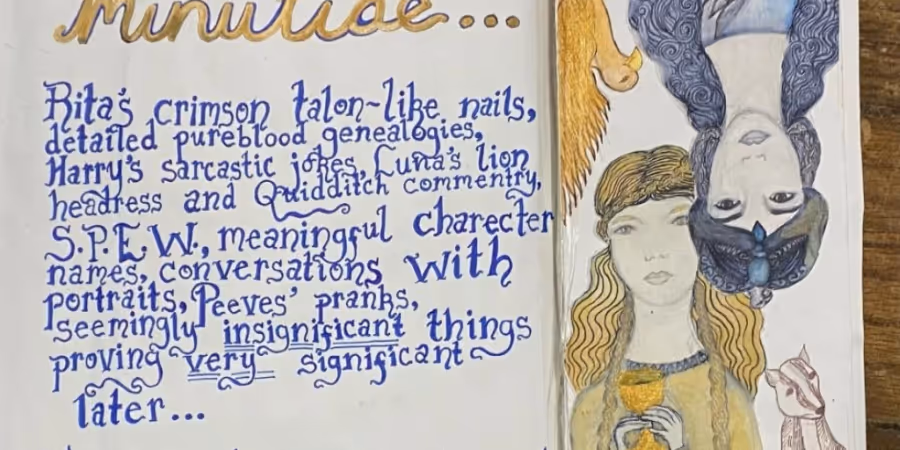 Minutiae...
Rita's crimson talon-like nails,
detailed pureblood genealogies,
Harry's sarcastic jokes, Luna's lion
headress and Quidditch commentry,
S.P.E.W., meaningful charecter
names, conversations with
portraits, Peeves' pranks,
seemingly insignificant things
proving very significant
later...